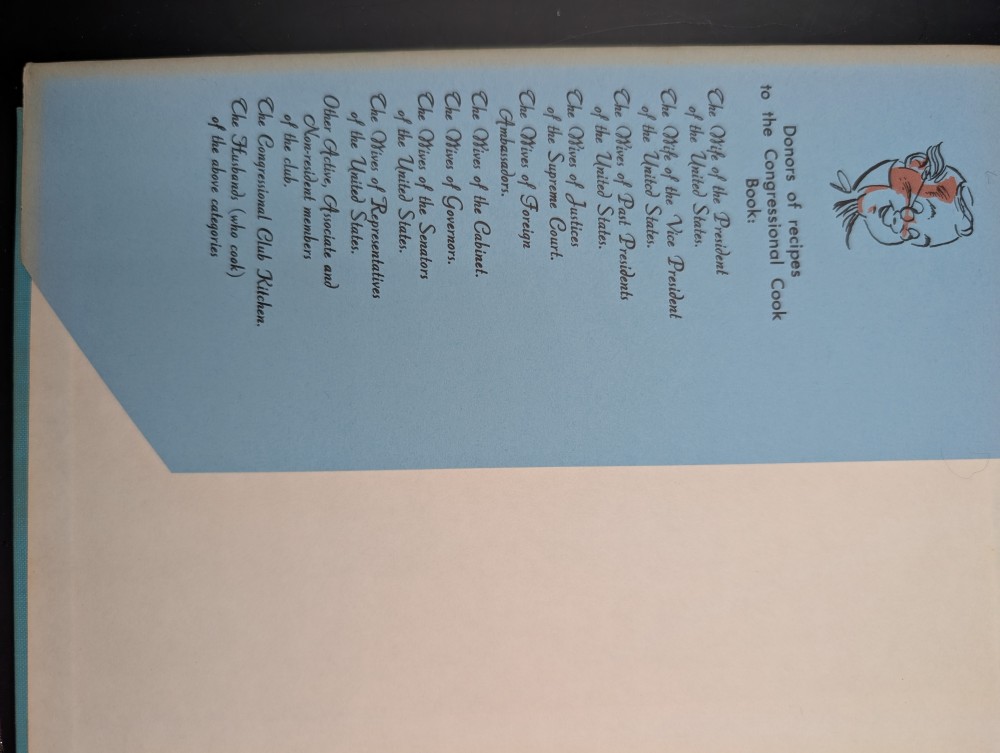 Donors of recipes
to the Congressional Cook
Book:
The Wife of the President
of the United States.
The Wife of the Vice President
of the United States.
The Wives of Past Presidents
of the United States.
The Wives of Justices
of the Supreme Court.
The Wives of Foreign
Ambassadors.
The Wives of the Cabinet.
The Wives of Governors.
The Wives of the Senators
of the United States.
The Wives of Representatives
of the United States.
Other Active, Associate and
Non-resident members
of the club.
The Congressional Club Kitchen.
The Husbands (who cook)
of the above categories